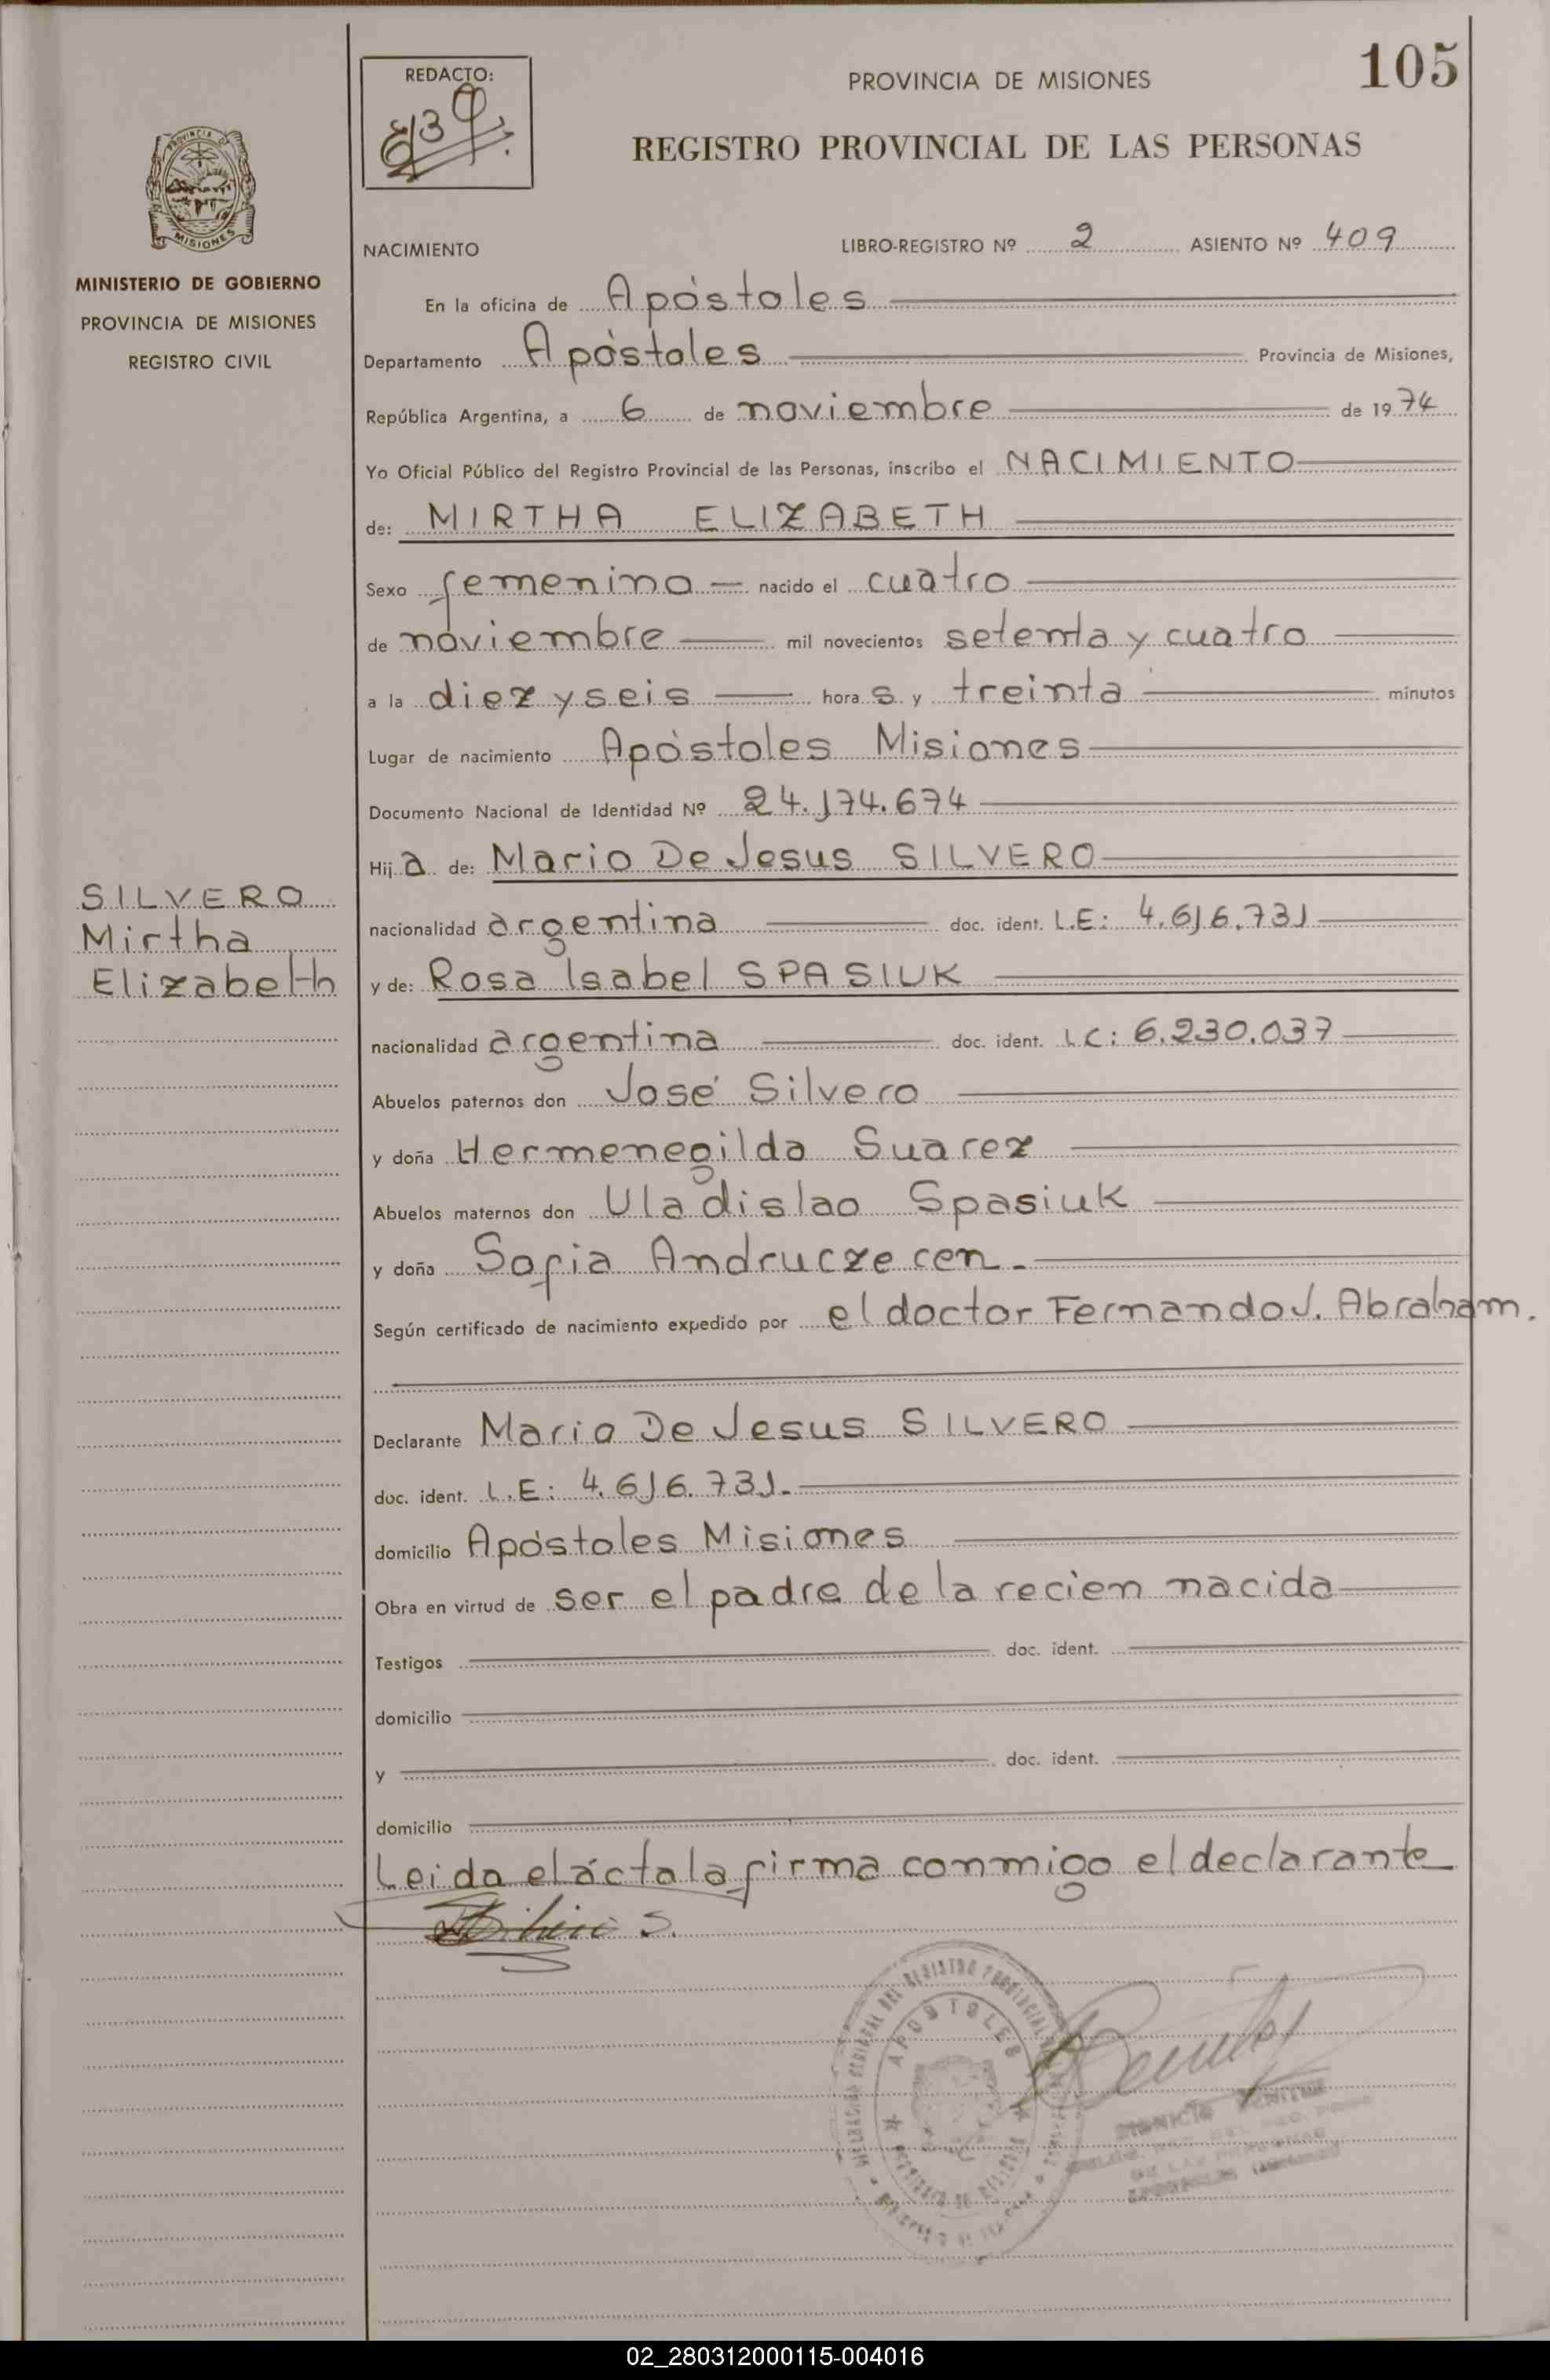 105
REDACTO:
PROVINCIA DE MISIONES
REGISTRO PROVINCIAL DE LAS PERSONAS
PROVINCIA DE
MISIONES
MINISTERIO DE GOBIERNO
PROVINCIA DE MISIONES
REGISTRO CIVIL
NACIMIENTO LIBRO-REGISTRO Nº 2 ASIENTO Nº 409
En la oficina de Apóstoles
Departamento Apóstoles Provincia de Misiones,
República Argentina, a 6 de noviembre de 1974
Yo Oficial Público del Registro Provincial de las Personas, inscribo el NACIMIENTO
de: MIRTHA ELIZABETH
Sexo femenino nacido el cuatro
de noviembre mil novecientos setenta y cuatro
a la diez y seis hora s y treinta minutos
Lugar de nacimiento Apóstoles Misiones
Documento Nacional de Identidad Nº 24.174.674
Hij a de: Mario De Jesus SILVERO
SILVERO
Mirtha
Elizabeth
nacionalidad argentina doc. ident. L.E: 4.616.731
y de: Rosa Isabel SPASIUK
nacionalidad argentina doc. ident. L C: 6.230.037
Abuelos paternos don José Silvero
y doña Hermenegilda Suarez
Abuelos maternos don Uladislao Spasiuk
y doña Sofia Andruczecen.
Según certificado de nacimiento expedido por el doctor Fernando J. Abraham.
Declarante Mario De Jesus SILVERO
doc. ident. L.E: 4.616.731.
domicilio Apóstoles Misiones
Obra en virtud de ser el padre de la recien nacida
Testigos doc. ident.
domicilio
y doc. ident.
domicilio
Leida elácta la firma conmigo el declarante
APOSTOLES
02_280312000115-004016